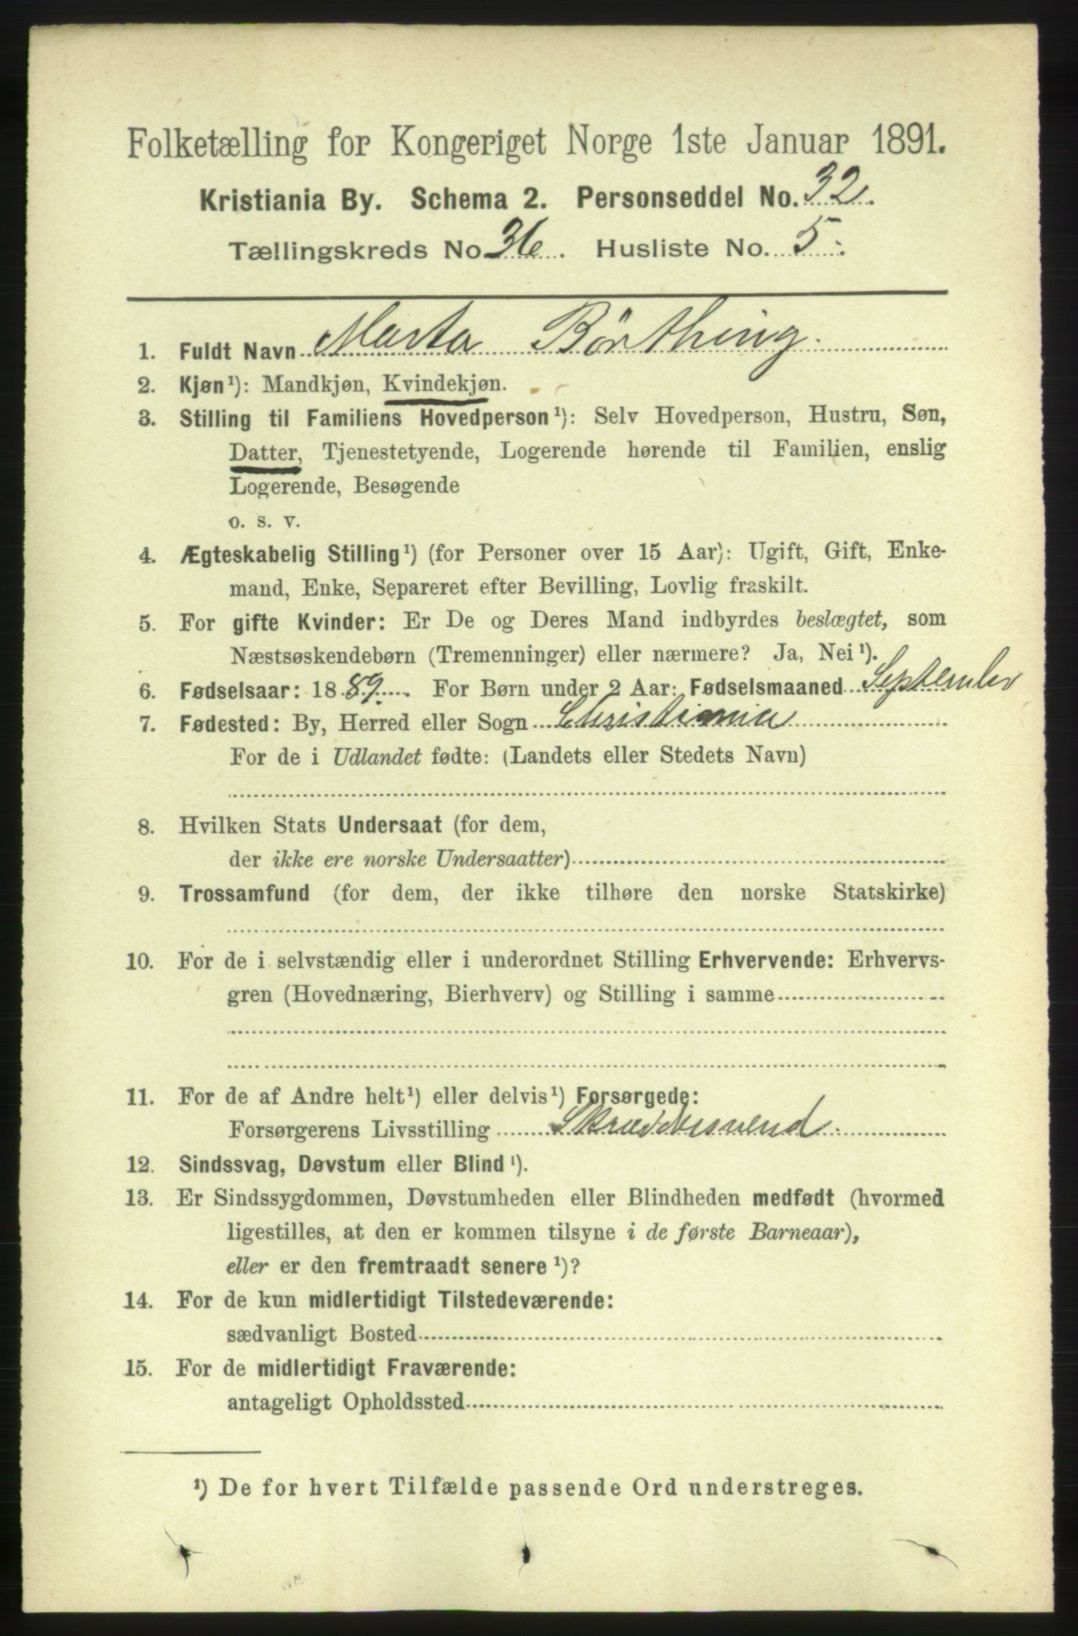 Folketælling for Kongeriget Norge 1ste Januar 1891.
Kristiania By. Schema 2. Personseddel No. 32.
Tællingskreds No. 36. Husliste No. 5.
1. Fuldt Navn Marta Börthing.
2. Kjøn¹): Mandkjøn, Kvindekjøn.
3. Stilling til Familiens Hovedperson¹): Selv Hovedperson, Hustru, Søn,
Datter, Tjenestetyende, Logerende hørende til Familien, enslig
Logerende, Besøgende
o. s. v.
4. Ægteskabelig Stilling¹) (for Personer over 15 Aar): Ugift, Gift, Enke-
mand, Enke, Separeret efter Bevilling, Lovlig fraskilt.
5. For gifte Kvinder: Er De og Deres Mand indbyrdes beslægtet, som
Næstsøskendebørn (Tremenninger) eller nærmere? Ja, Nei¹).
6. Fødselsaar: 1889. For Børn under 2 Aar: Fødselsmaaned September
7. Fødested: By, Herred eller Sogn Christiania
For de i Udlandet fødte: (Landets eller Stedets Navn)
8. Hvilken Stats Undersaat (for dem,
der ikke ere norske Undersaatter)
9. Trossamfund (for dem, der ikke tilhøre den norske Statskirke)
10. For de i selvstændig eller i underordnet Stilling Erhvervende: Erhvervs-
gren (Hovednæring, Bierhverv) og Stilling i samme
11. For de af Andre helt¹) eller delvis¹) Forsørgede:
Forsørgerens Livsstilling Skræddersvend
12. Sindssvag, Døvstum eller Blind¹).
13. Er Sindssygdommen, Døvstumheden eller Blindheden medfødt (hvormed
ligestilles, at den er kommen tilsyne i de første Barneaar),
eller er den fremtraadt senere¹)?
14. For de kun midlertidigt Tilstedeværende:
sædvanligt Bosted
15. For de midlertidigt Fraværende:
antageligt Opholdssted
¹) De for hvert Tilfælde passende Ord understreges.